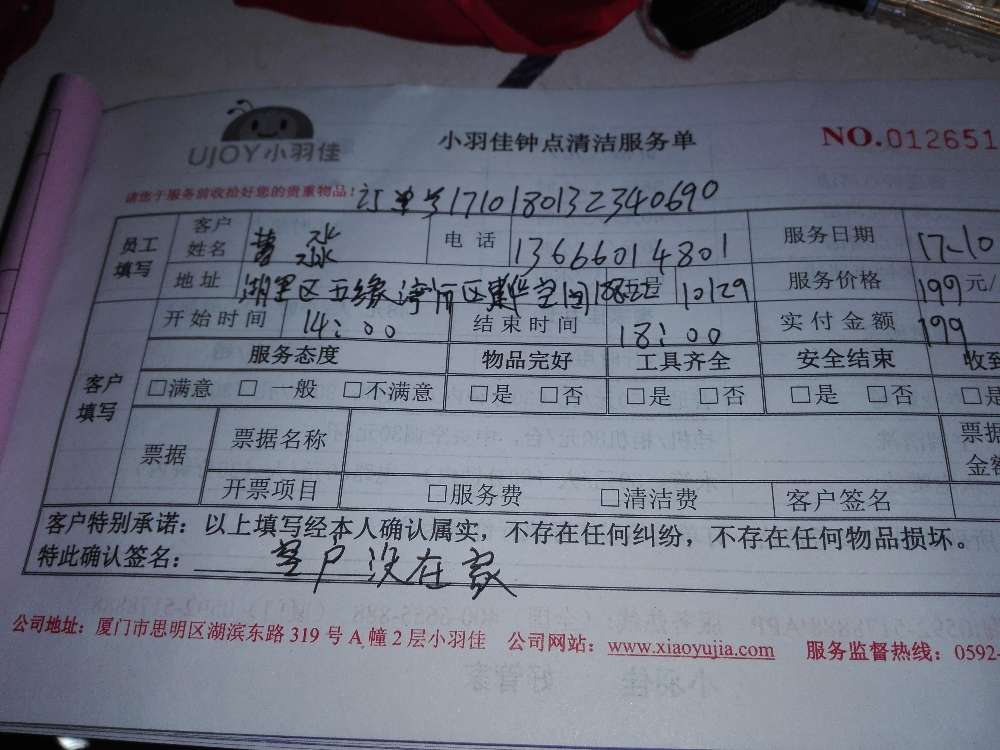 UJOY小羽佳
小羽佳钟点清洁服务单
NO.012651
请您于服务前收拾好您的贵重物品!
订单号1710180132340690
员工填写 客户姓名 电话 13666014801 服务日期 17-10
地址 湖里区五缘湾 10129 服务价格 199元/
开始时间 14:00 结束时间 18:00 实付金额 199
客户填写 服务态度 物品完好 工具齐全 安全结束 收到
□满意 □一般 □不满意 □是 □否 □是 □否 □是 □否 □是
票据 票据名称 票据金额
开票项目 □服务费 □清洁费 客户签名
客户特别承诺：以上填写经本人确认属实，不存在任何纠纷，不存在任何物品损坏。
特此确认签名：客户没在家
公司地址：厦门市思明区湖滨东路 319 号 A 幢 2 层小羽佳 公司网站：www.xiaoyujia.com 服务监督热线：0592-